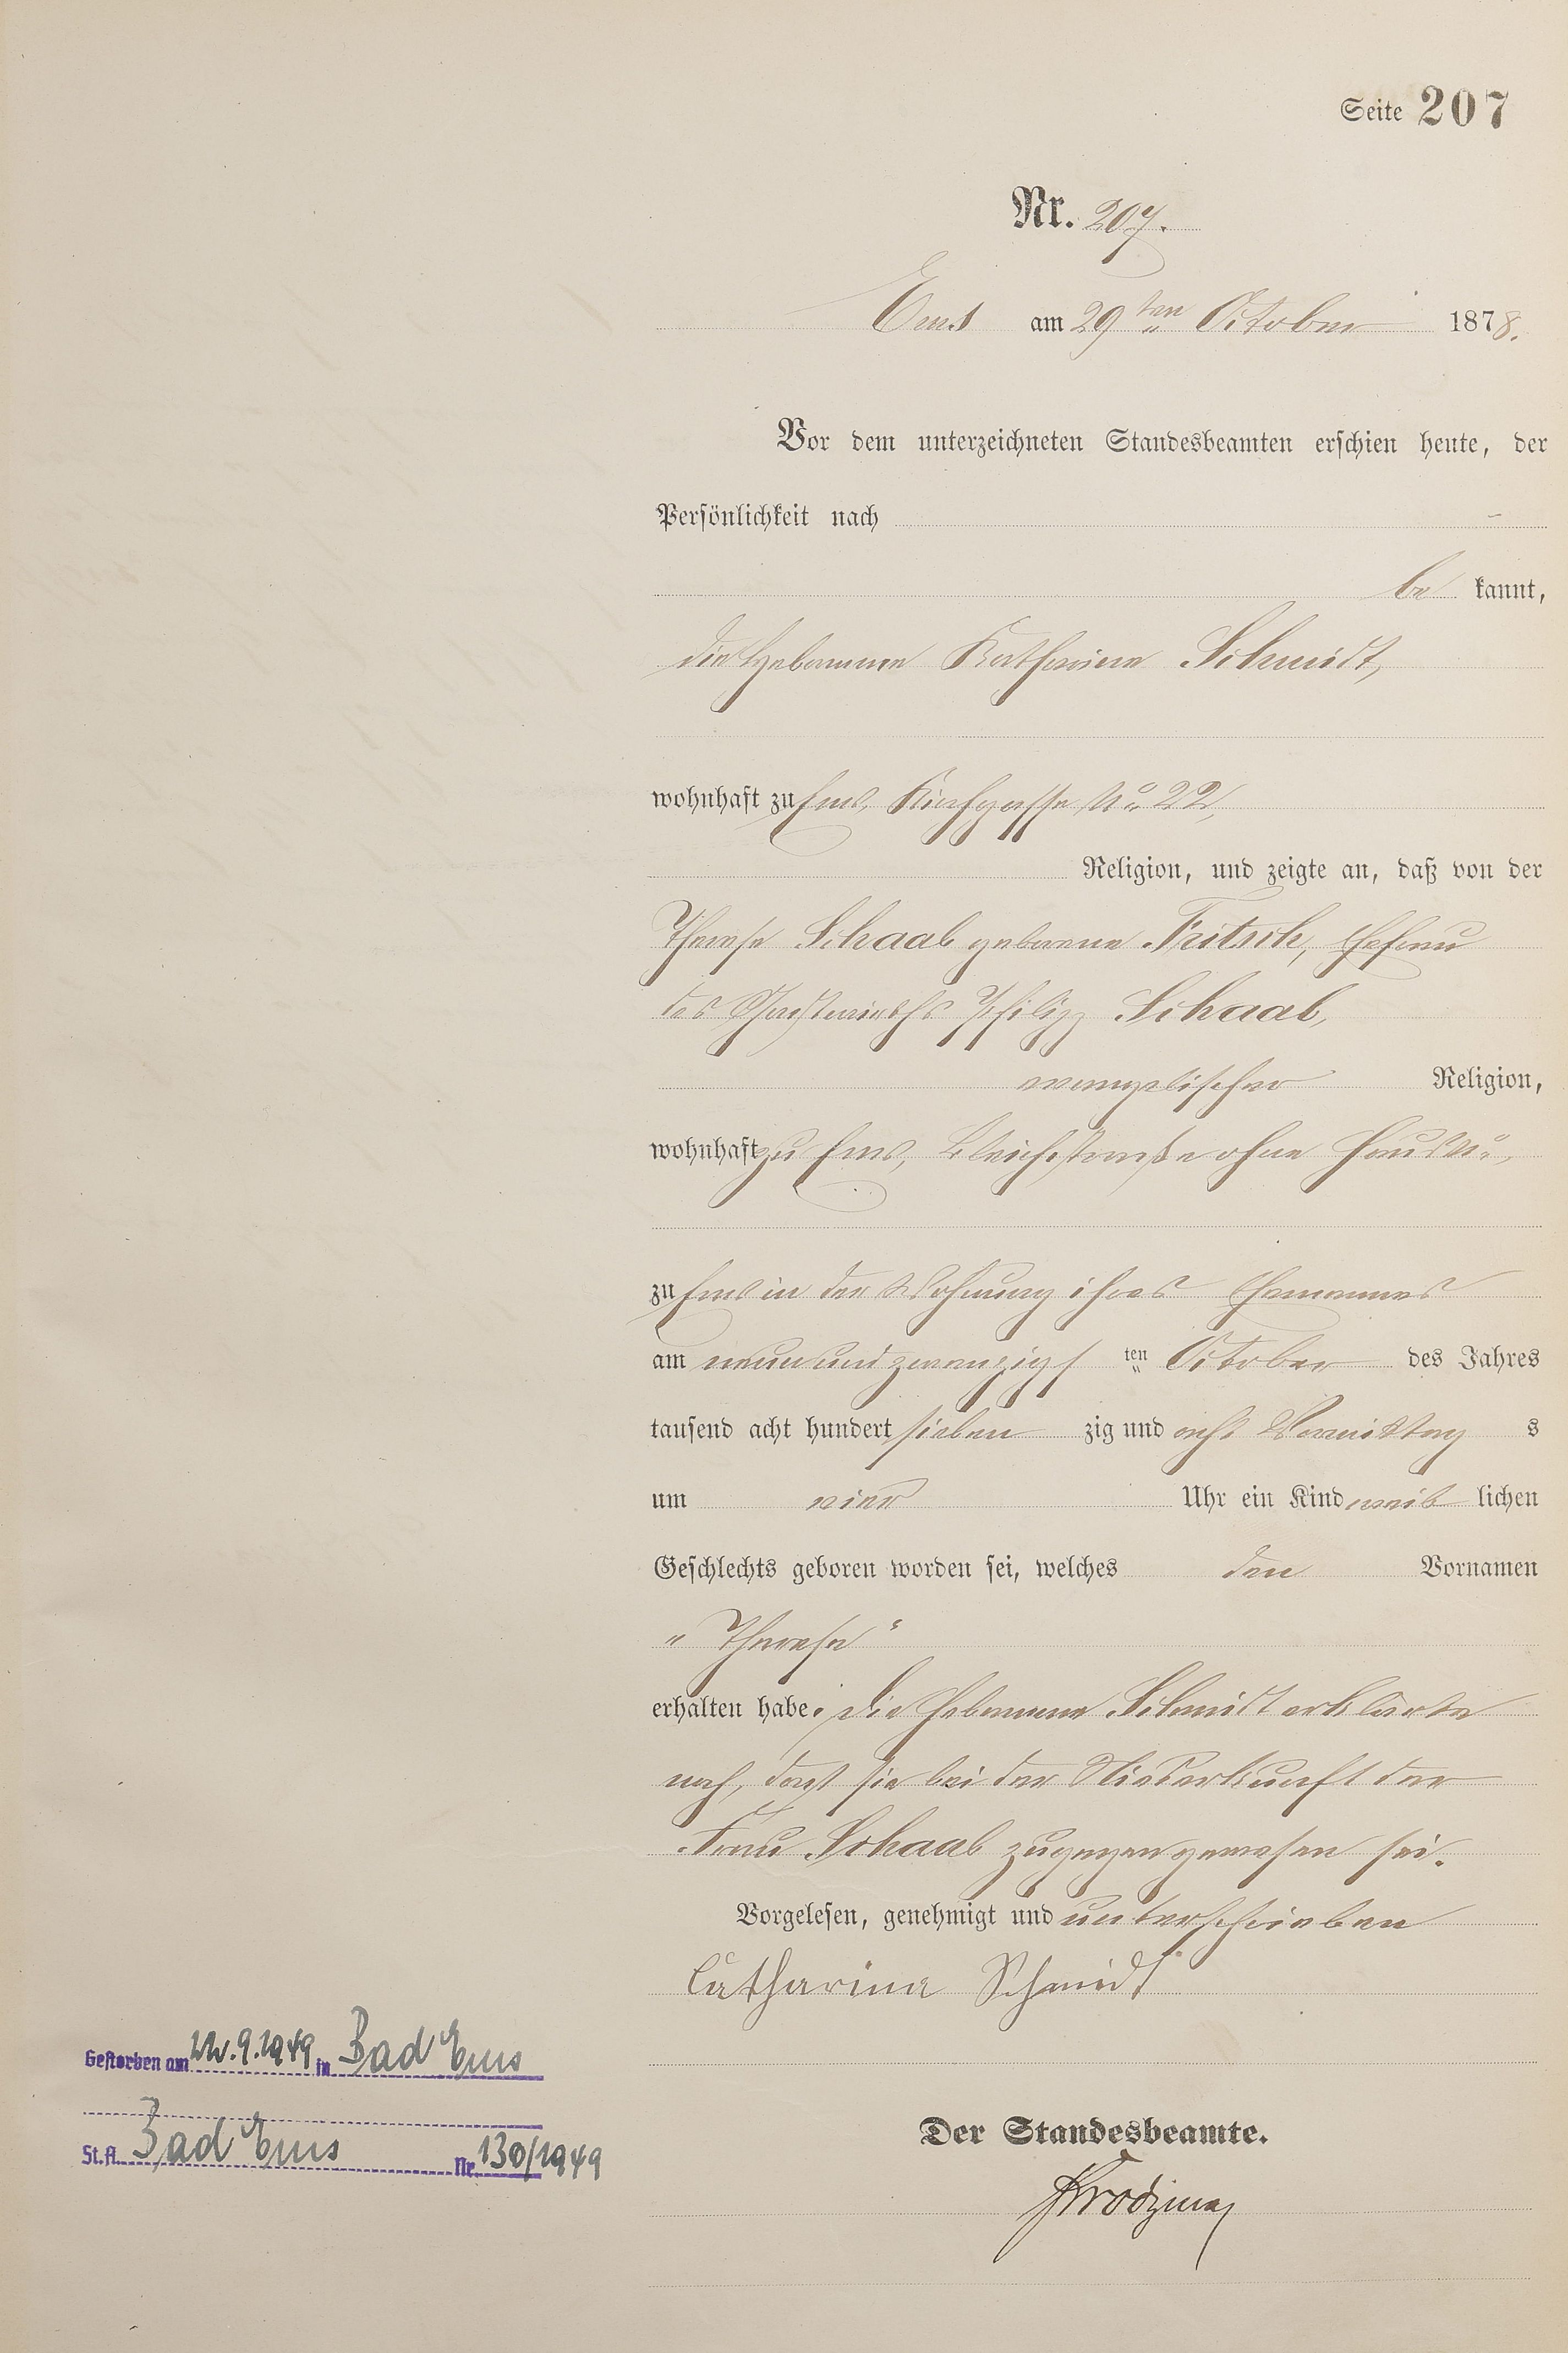 Seite 207
Nr. 207.
Ems am 29ten October 1878.
Vor dem unterzeichneten Standesbeamten erschien heute, der
Persönlichkeit nach -
be kannt,
die Hebamme Katharine Schmidt,
wohnhaft zu Ems, Kirchgasse No. 22,
Religion, und zeigte an, daß von der
Therese Schaab geborene Fritsch, Ehefrau
des Gastwirths Philipp Schaab,
evangelischer Religion,
wohnhaft zu Ems, Bleichstraße ohne Haus No.,
zu Ems in der Wohnung ihres Ehemannes
am neunundzwanzigsten October des Jahres
tausend acht hundert sieben zig und acht Vormittag s
um vier Uhr ein Kind weib lichen
Geschlechts geboren worden sei, welches den Vornamen
„Therese"
erhalten habe. Die Hebamme Schmidt erklärte
noch, daß sie bei der Niederkunft der
Frau Schaab zugegen gewesen sei.
Vorgelesen, genehmigt und unterschrieben
Catharina Schmidt
Gestorben am 22.9.1949 in Bad Ems
St.A. Bad Ems Nr. 130/1949
Der Standesbeamte.